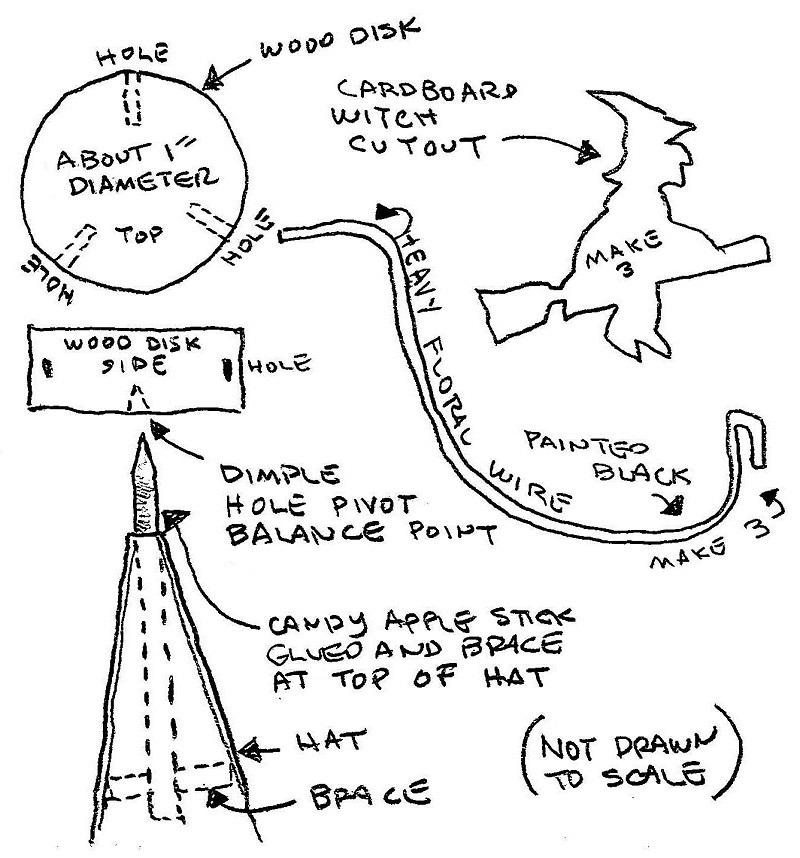 HOLE
WOOD DISK
ABOUT 1"
DIAMETER
TOP
HOLE
HOLE
CARDBOARD
WITCH
CUTOUT
MAKE
3
HEAVY FLORAL WIRE
WOOD DISK
SIDE
HOLE
PAINTED
BLACK
MAKE 3
DIMPLE
HOLE PIVOT
BALANCE POINT
CANDY APPLE STICK
GLUED AND BRACE
AT TOP OF HAT
HAT
BRACE
(NOT DRAWN
TO SCALE)